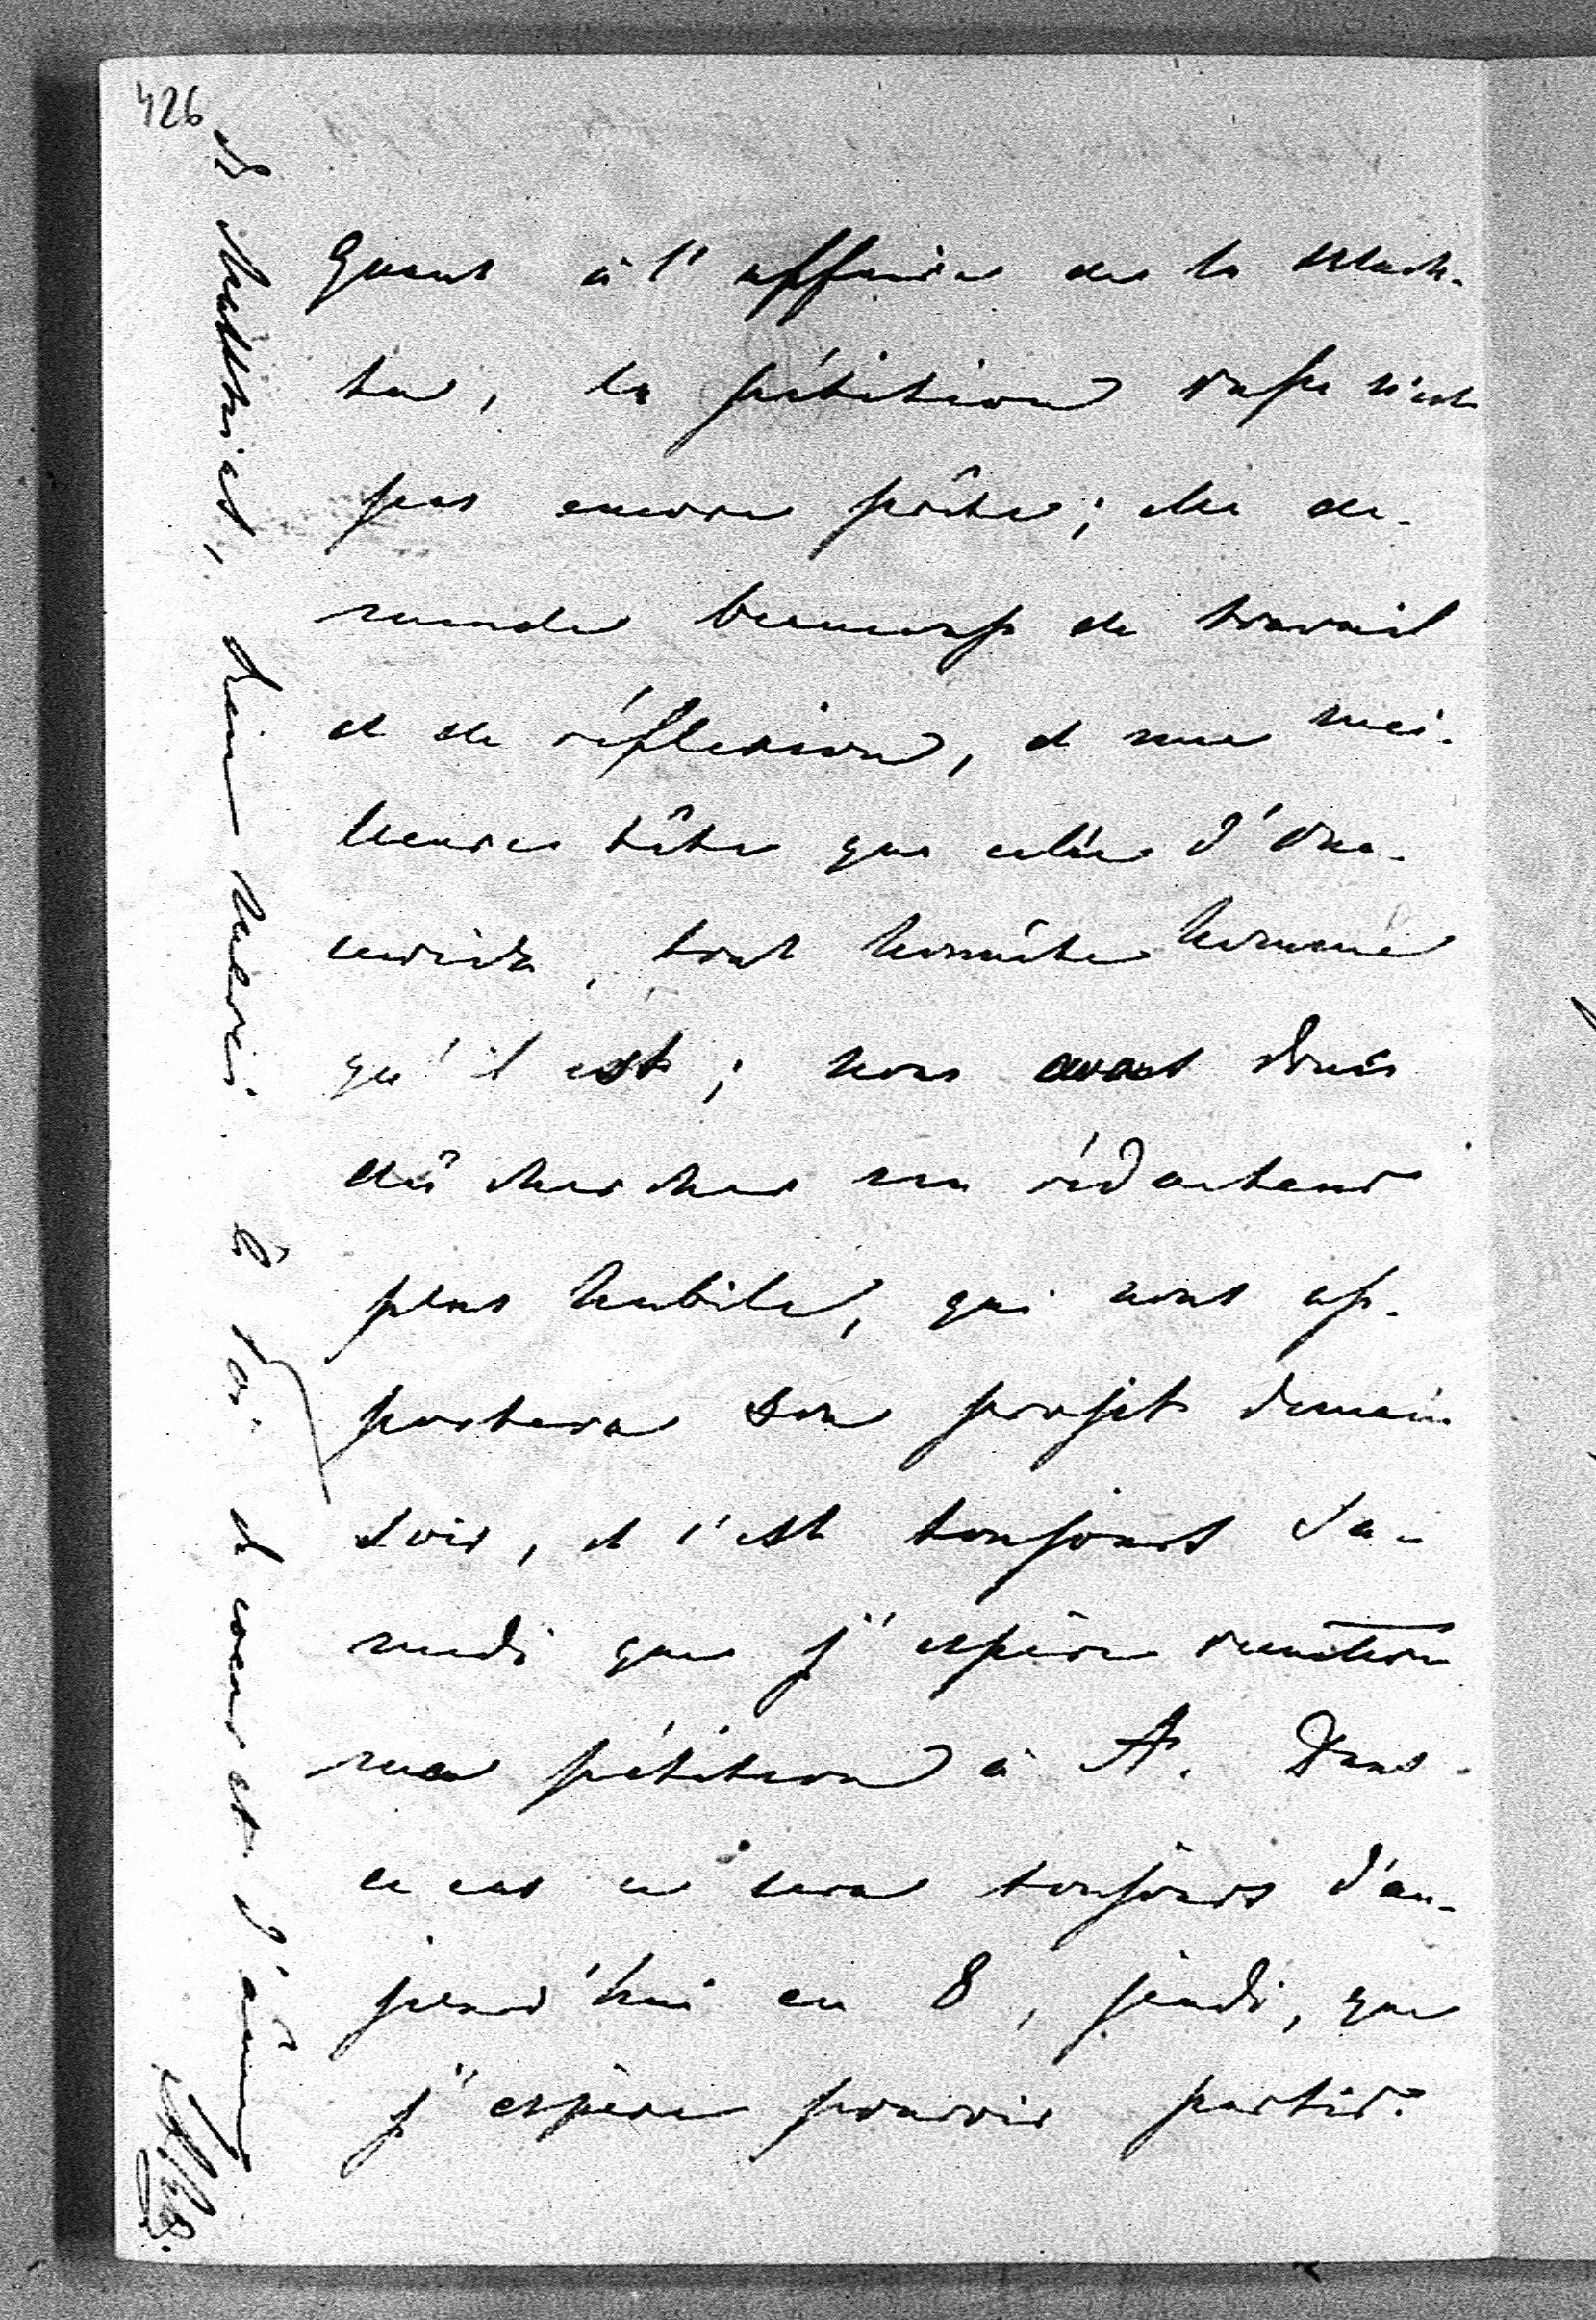 426
Quant à l'affaire de la
la pétition russe n'est
pas encore prête; elle de-
mande beaucoup de travail
et de réflexion, et une meil-
leure tête que celle d'
tout honnête homme
qu'il est; nous avons donc
dû chercher un rédacteur
plus habile, qui nous ap-
portera son projet demain
soir, et c'est toujours Sa-
medi que j'espère remettre
ma pétition à A. Dans
ce cas ce sera toujours d'au-
jourd'hui en 8, jeudi, que
j'espère pouvoir partir.
rien encore. à toi de coeur et d'âme